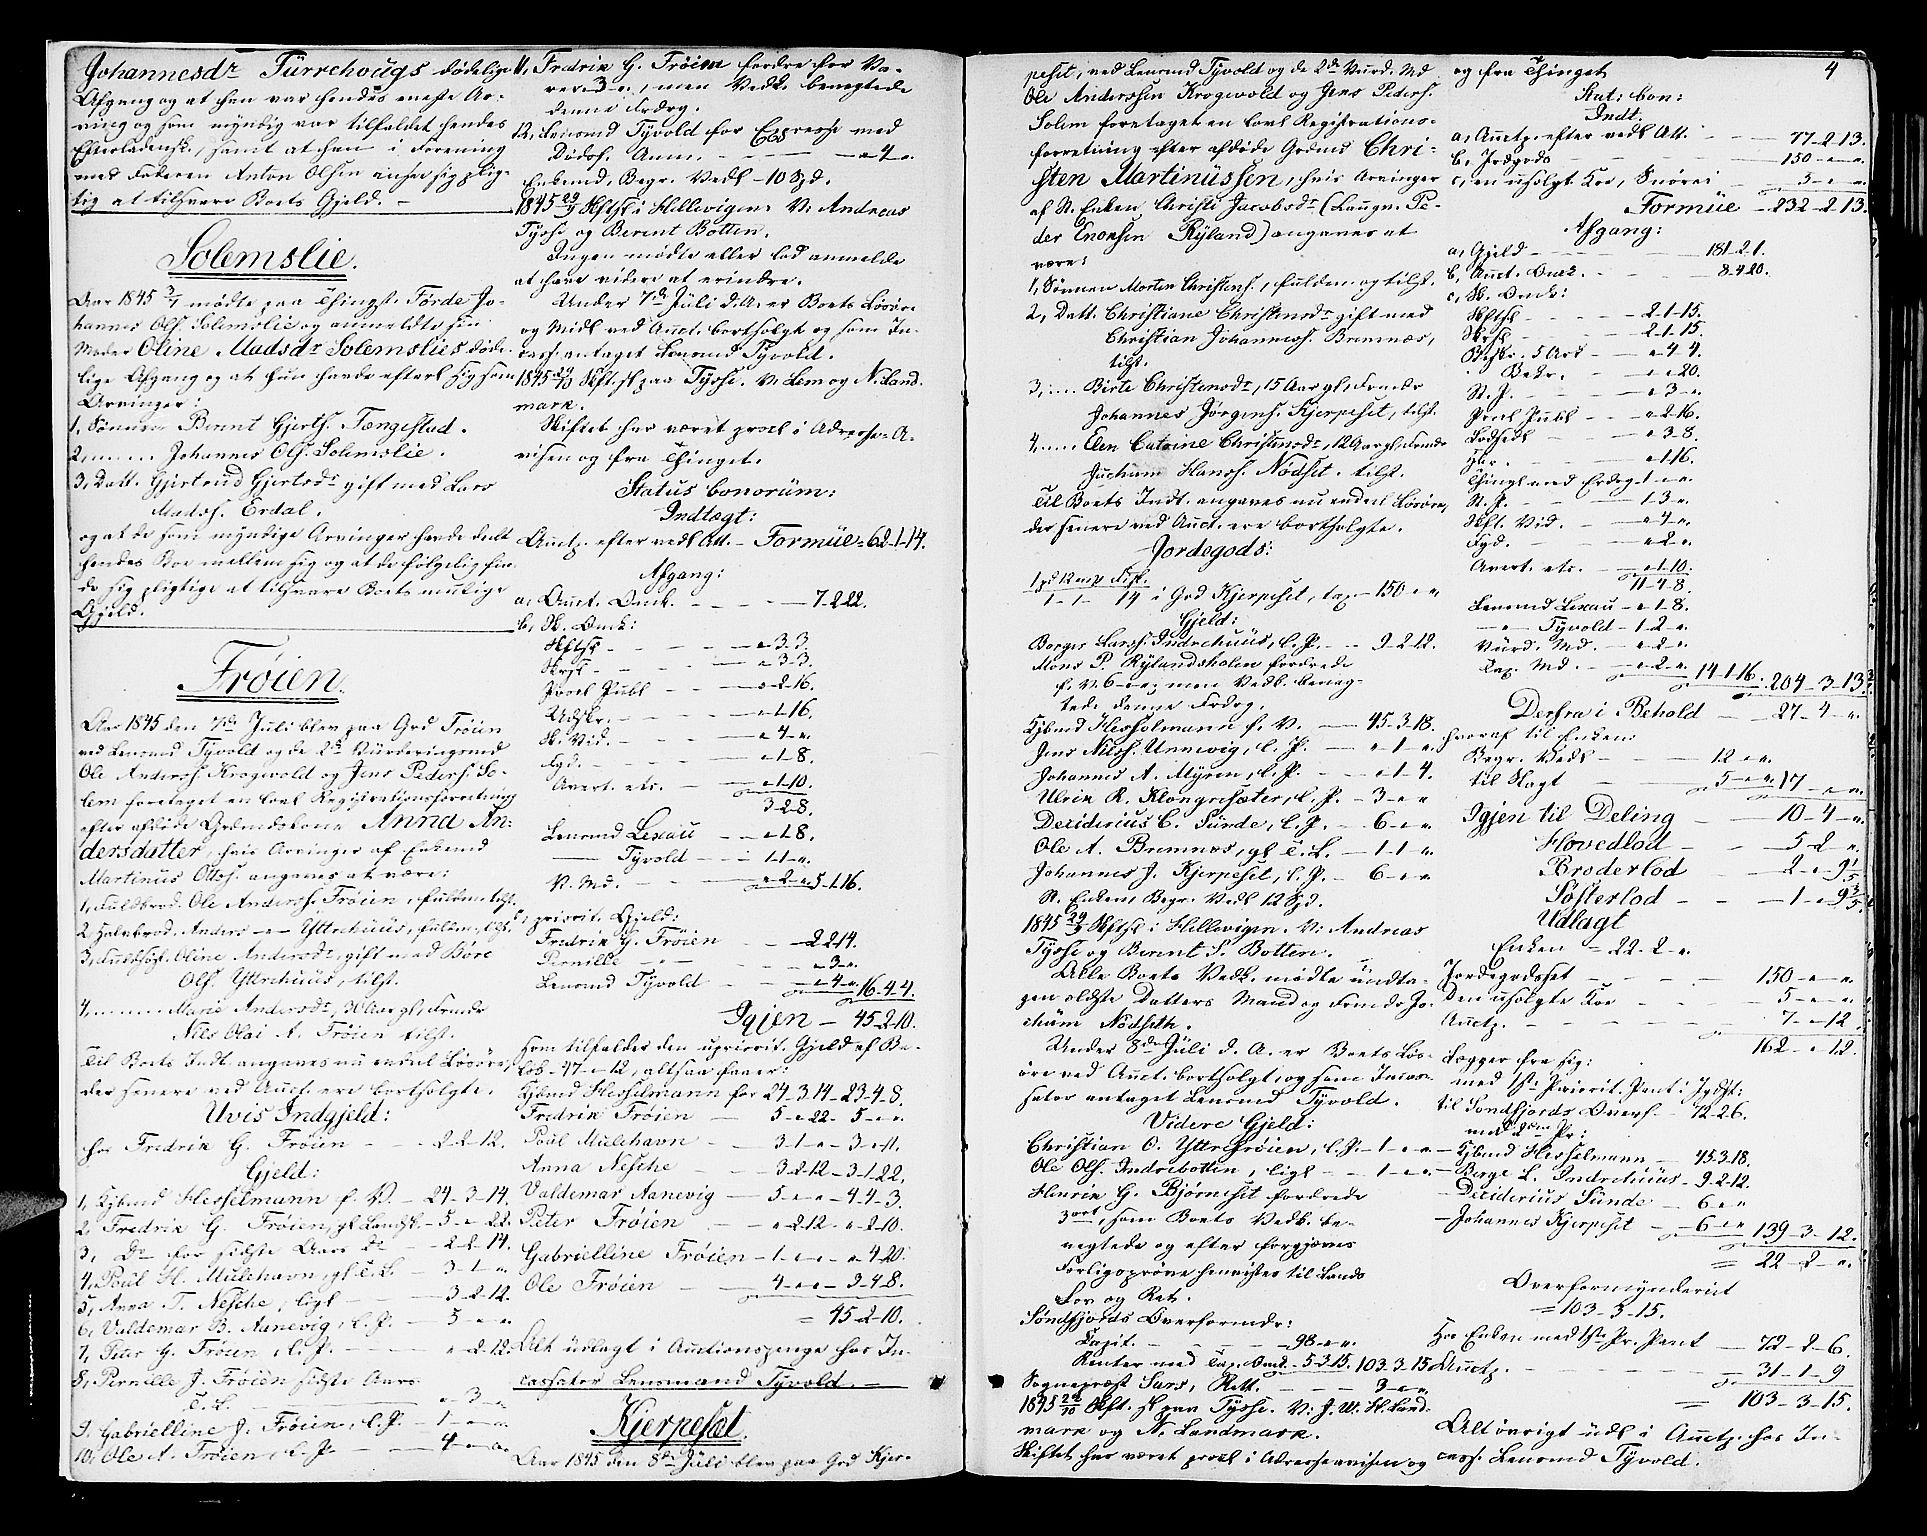 Johannesdr Türrehougs dødelige
Afgang og at han var hendes eneste Ar-
ving og som myndig var tilfaldet hendes
Efterladensk., samt at han i Forening
med Faderen Anton Olsen anser sig plig-
tig at tilsvare Boets Gjeld. —
Solemslie.
Aar 1845 3/7 mødte paa Thingst. Førde Jo-
hannes Ols. Solemslie og anmeldte sin
Moder Oline Madsdr Solemslies døde-
lige Afgang og at hun havde efterl. sig som
Arvinger:
1, Sønnen Bernt Gjerts. Tengestad.
2, — Johannes Ols. Solemslie.
3, Datt. Gjertrud Gjertsdr gift med Lars
Madss. Erdal.
og at de som myndige Arvinger havde delt
hendes Boe mellem sig og at de følgelig fin-
de sig pligtige at tilsvare Boets mulige
Gjeld.
Frøien.
Aar 1845 den 7de Juli blev paa Grd Frøien
ved Lensmd Tyvold og de 2de Vurderingsmd
Ole Anderss. Krogevold og Jens Peders. So-
lem foretaget en lovl Registrationsforretning
efter afdøde Grdmdskone Anna An-
dersdatter, hvis Arvinger af Enkemd
Martinus Ottos. angaves at være:
1, Fuldbrod. Ole Anderss. Frøien, fuldm. tilst.
2, Halvbrod. Anders — Yttrehuus, fuldm. tilst.
3, Fuldsøst. Oline Andersdr, gift med Børe
Ols. Yttrehuus, tilst.
4, — Marie Andersdr, 30 Aar gl, Formdr
Niels Olai A. Frøien tilst.
Til Boets Indt. angaves nu endeel Løsøre,
der senere ved Auct. ere bortsolgte.
Uvis Indgjeld:
hos Fredrik G. Frøien - - 2-2-12.
Gjeld:
1, Kjbmd Hesselmann f. V. — 24-3-14.
2, Fredrik G. Frøien, gl Landsk. - 5-"-22.
3, Do for sidste Aars do - 2-2-14.
4, Poul H. Mulehavn, gl T.L. - 3-1-"
5, Anna T. Nesche, ligl - - 3-2-12.
6, Valdemar B. Aanevig, l.P. - 5-"-"
7, Peter G. Frøien, l.P. - - "-2-12.
8, Pernille J. Frøien sidste Aars
T.L. - - - "-3-"
9, Gabrielline J. Frøien, l.P. - 1-"-"
10, Ole A. Frøien, l.P. - 4-"-"
11, Fredrik G. Frøien fordre for Va-
rer 3-"-", men Vedk. benegtede
denne Fordrg.
12, Lensmd Tyvold for Expresse med
Dødsf. Anm. - - "-4-"
Enkemd. Begr. Vedl -10 Spd.
1845 29/9 Skftsl i Hellevigen V: Andreas
Tysse og Berent Botten.
Ingen mødte eller lod anmelde
at have videre at erindre.
Under 7de Juli d. A. er Boets Løsøre
og Midl ved Auct. bortsolgt og som In-
cass. antaget Lensmd Tyvold.
1845 29/10 Skft. sl paa Tysse. V: Lem og N. Land-
mark.
Skiftet har været procl i Adresse-A-
visen og fra Thinget.
Status bonorum:
Indtægt:
Auctp. efter vedl Att. - Formue = 62-1-14.
Afgang:
a, Auct. Omk. - - - 7-2-22.
b, Sk. Omk:
Skftsk - - - "-3-3.
Skrsk - - - "-3-3.
Procl Publ - - "-2-16.
Udskr. - - "-1-16.
Sk. Vid. - - "-4-"
Fgd. - - "-1-8.
Avert. ets. - "-1-10.
3-2-8.
Lensmd Lexau - - "-1-8.
— Tyvold - - 1-1-"
V. Md. - - "-2-" 5-1-16.
c, priorit. Gjeld:
Fredrik G. Frøien - - 2-2-14.
Pernille — - - "-3-"
Lensmd Tyvold - - "-4-" 16-4-4.
Igjen - 45-2-10.
som tilfalder den upriorit. Gjeld af Be-
løb -47-"-12, altsaa faaer:
Kjbmd Hesselmann for 24-3-14 - 23-4-8.
Fredrik Frøien - 5-"-22 - 5-"-"
Poul Mulehavn - 3-1-" - 3-"-11.
Anna Nesche - - 3-2-12 - 3-1-22.
Valdemar Aanevig - 5-"-" - 4-4-3.
Peter Frøien - - "-2-12 - "-2-10.
Gabrielline Frøien - 1-"-" - "-4-20.
Ole Frøien - - 4-"-" - 3-4-8.
= 45-2-10.
Alt udlagt i Auctionspenge hos In-
cassator Lensmand Tyvold. —
Kjerpeset.
Aar 1845 den 8de Juli blev paa Grd Kjer-
4
peset, ved Lensmd Tyvold og de 2de Vurd. Md
Ole Anderssen Krogevold og Jens Peders.
Solem foretaget en lovl Registrations-
forretning efter afdøde Grdmd Chri-
sten Martinussen, hvis Arvinger
af St. Enken Christi Jacobsdr (Laugv. Pe-
der Enoksen Ryland) angaves at
være:
1, Sønnen Morten Christens., fuldm. og tilst.
2, Datt. Christiane Christensdr gift med
Christian Johanness. Bremnes,
tilst.
3, — Birte Christensdr, 15 Aar gl, Formdr
Johannes Jørgens. Kjerpeset, tilst.
4, — Elen Catrine Christensdr, 12 Aar gl, Formdr
Jochum Hanss. Nødset. tilst.
Til Boets Indt. angaves nu endeel Løsøre,
der senere ved Auct. ere bortsolgte.
Jordegods:
1 pd 12 mrk Fisk.
1-1-14 i Grd Kjerpeset, tax. - 150-"-"
Gjeld:
Borger Larss. Indrehuus, l.P. - - 9-2-12.
Mons P. Rylandsholm fordrede
f. V. 6-"-"; men Vedk. beneg-
tede denne Fordrg.
Kjbmd Hesselmann f. V. — 45-3-18.
Jens Nilss. Unnevig, l.P. - "-1-"
Johannes A. Myren, l.P. - - "-1-4.
Ulrik R. Klongresæter, l.P. - 3-"-"
Deziderius C. Sünde, l.P. - 6-"-"
Ole A. Bremnes, gl T.L. - 1-1-"
Johannes J. Kjerpeset, l.P. - 6-"-"
St. Enkens Begr. Vedl 12 Spd.
1845 29/9 Skftsl i Hellevigen. V: Andreas
Tysse og Bernt S. Botten.
Alle Boets Vedk. mødte undta-
gen ældste Datters Mand og Formdr Jo-
chum Nødseth.
Under 8de Juli d. A. er Boets Løs-
øre ved Auct. bortsolgt, og som Incas-
sator antaget Lensmd Tyvold.
Videre Gjeld:
Christian O. Yttrefrøien, l.P. - 1-"-"
Ole Ols. Indrebotten, ligl - - 1-"-"
Henrik G. Bjørneset fordrede
3 ort, som Boets Vedk. be-
negtede og efter forgjæves
Forligsprøve henvistes til Lands
Lov og Ret.
Søndfjords Overformdr:
Capit. - - - 98-"-"
Renter med Tax. Omk. - 5-3-15. 103-3-15.
Sognepræst Sars, Rett. - - 3-"-"
1845 29/10 Skft. sl paa Tysse. V: J. W. H. Land-
mark og N. Landmark.
Skiftet har været procl i Adresseavisen og
og fra Thinget
Stat: bon:
Indt.
a, Auctp. efter vedl Att. - - 77-2-13.
b, Jordgods - - - 150-"-"
c, en usolgt Koe, Snørei - 5-"-"
Formue - 232-2-13.
Afgang:
a, Gjeld - - - 181-2-1.
b, Auct. Omk. - - - 8-4-20.
c, Sk. Omk:
Skftsk - - - 2-1-15.
Skrsk - - - 2-1-15.
Beskr. 5 Ark - - "-4-4.
Bekr. - - "-"-20.
St. P. - - "-3-"
Procl Publ - - "-2-16.
Lodsedl - - "-3-8.
Hbr. - - "-1-16.
Thingl. med Erdeg. 1-"-"
St. P. - - 1-3-"
Skft. Vid. - - "-4-"
Fgd. - - "-2-"
Avert. ets. - "-1-10.
11-4-8.
Lensmd Lexau - "-1-8.
— Tyvold - 1-2-"
Vurd. Md. - "-2-"
Tax. Md. - - "-2-" 14-1-16. 204-3-13.
Derfra i Behold - - 27-4-"
hvoraf til Enken:
Begr. Vedl - - - 12-"-"
til Slagt - - 5-"-" 17-"-"
Igjen til Deling - - 10-4-"
Hovedlod - - 5-2-"
Broderlod - - 2-"-9 1/5
Søsterlod - - 1-"-9 3/5.
Udlagt
Enken = 22-2-"
Jordegodset - - - 150-"-"
Den usolgte Koe - - 5-"-"
Auctp. - - - 7-"-12.
162-"-12.
Lægger fra sig:
med 1ste Priorit. Pant i Jgdst:
til Søndfjords Overf. - 72-2-6.
med 2den Pr:
— Kjbmd Hesselmann - 45-3-18.
— Berge L. Indrehuus - 9-2-12.
— Deziderius Sünde - 6-"-"
— Johannes Kjerpeset - - 6-"-" 139-3-12.
= 22-2-"
Overformynderiet
= 103-3-15.
Hos Enken med 1ste Pr. Pant - 72-2-6.
Auctp. - - - 31-1-9
= 103-3-15.
Alt øvrigt udl i Auctp. hos In-
cass. Lensmd Tyvold.